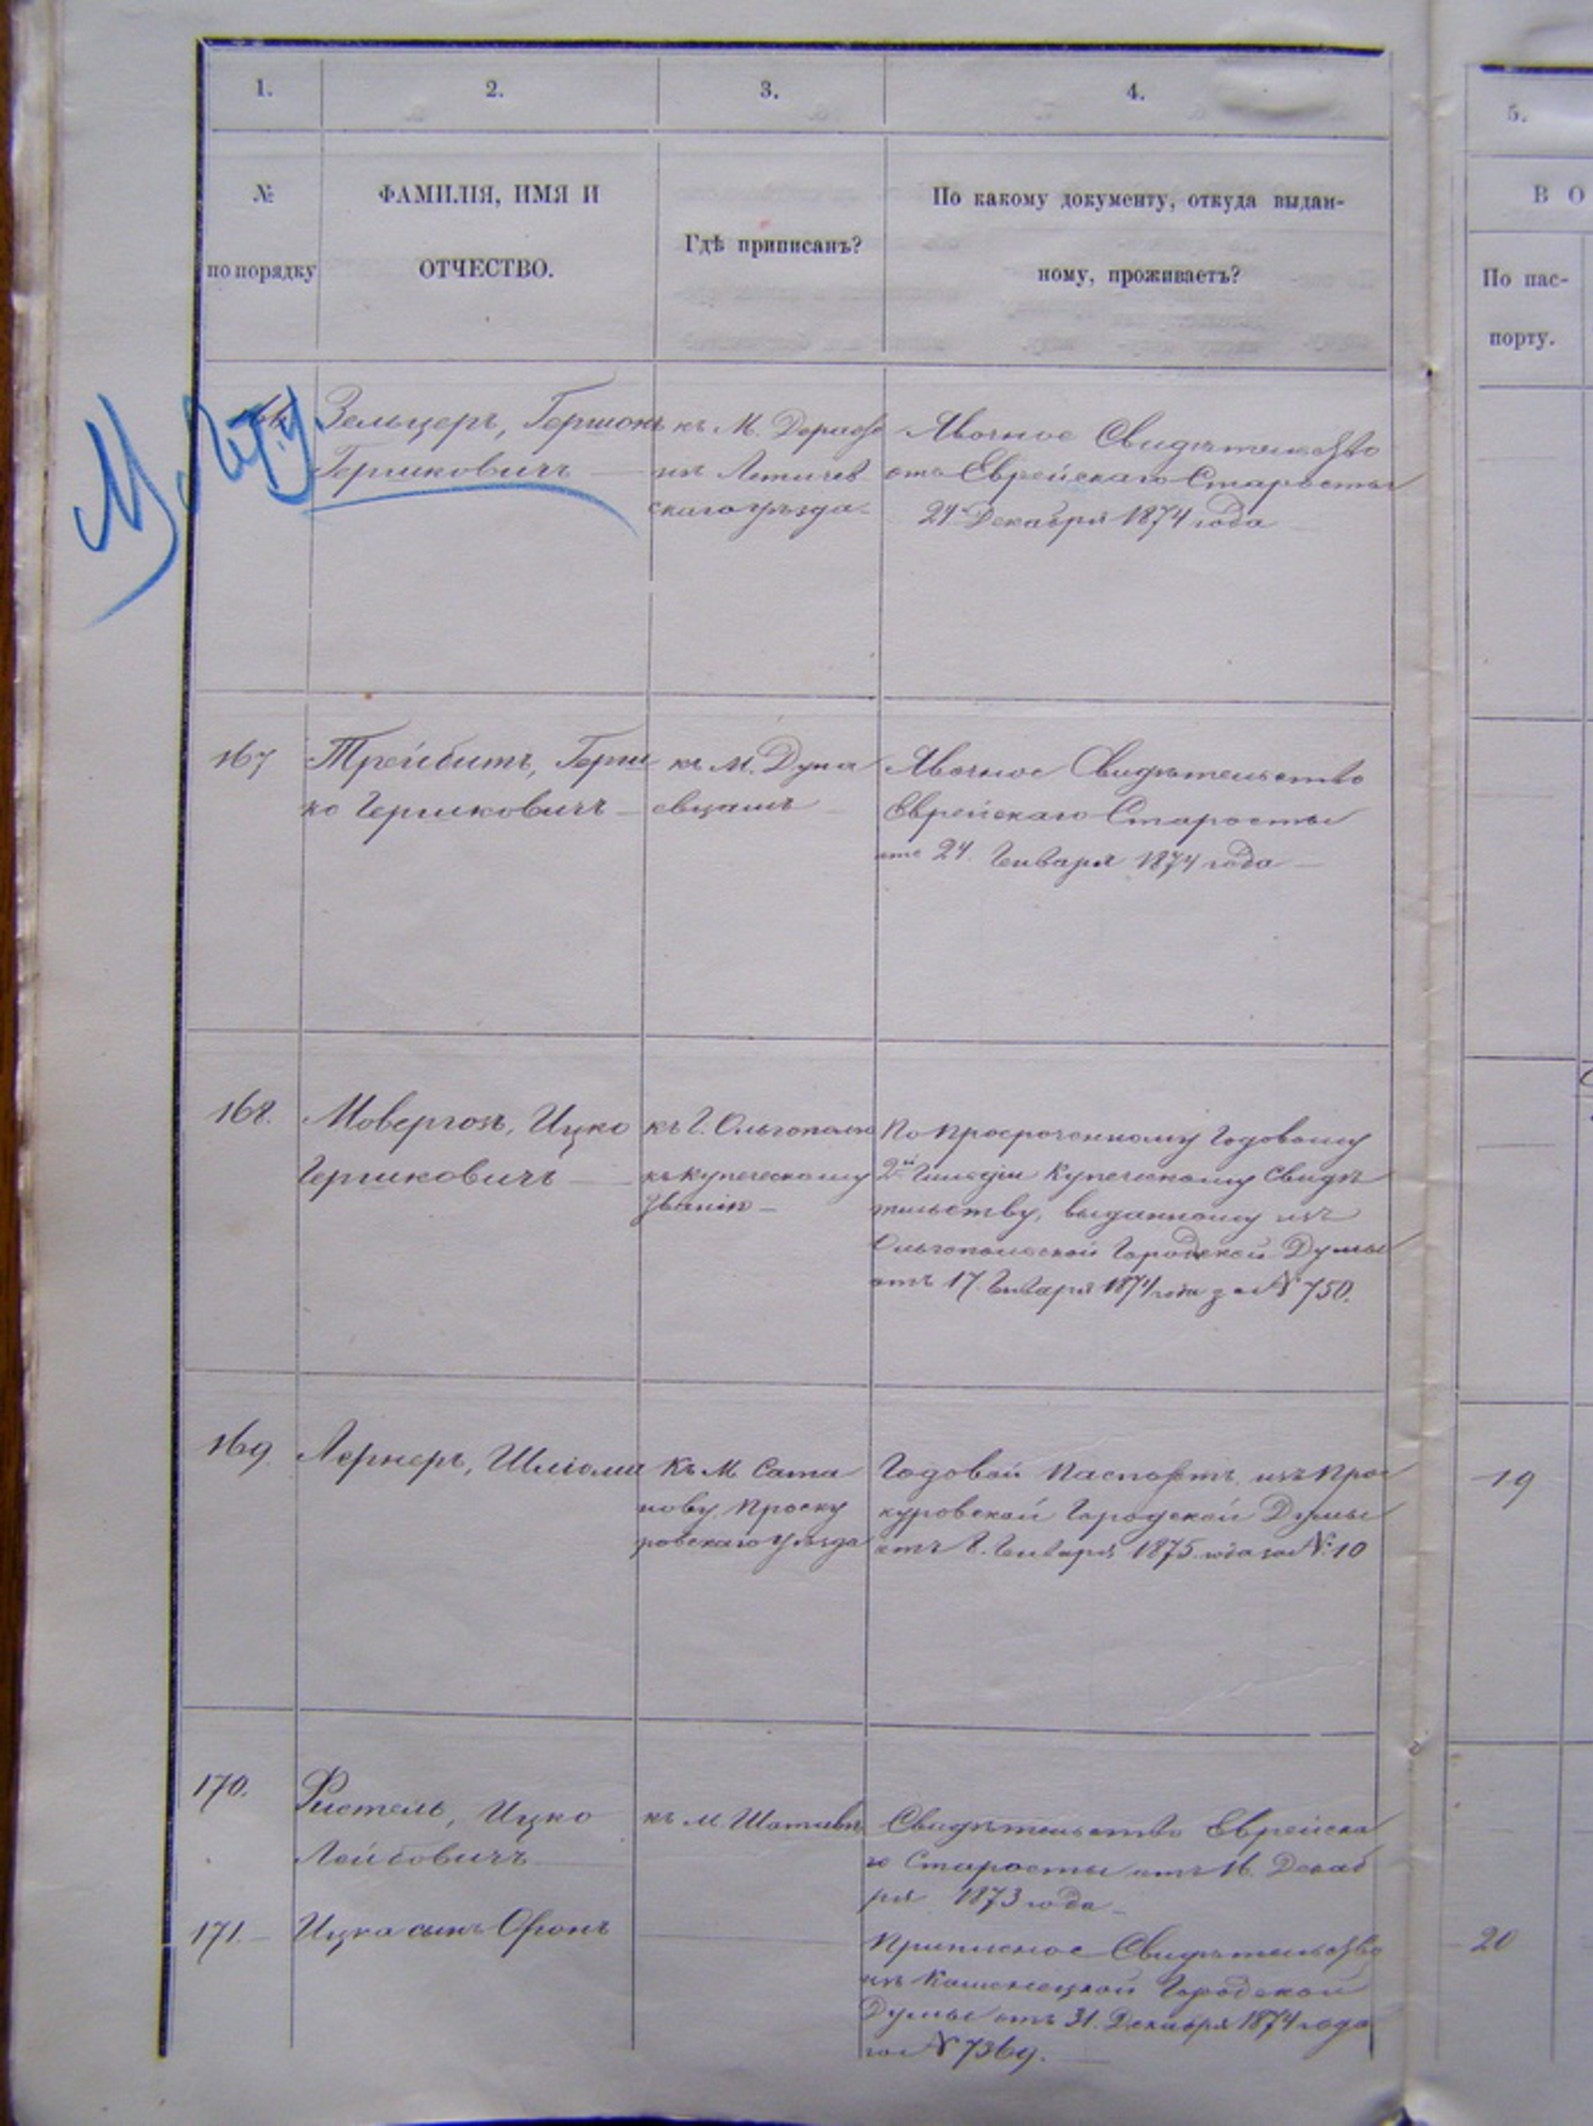 1.
2.
3.
4.
5.
№
по порядку
ФАМИЛІЯ, ИМЯ И
ОТЧЕСТВО.
Гдѣ приписанъ?
По какому документу, откуда выдан-
ному, проживаетъ?
В О
По пас-
порту.
Зельцеръ, Гершонъ
Гершковичъ
къ М. Деражн
нѣ Летичев
скаго уѣзда
Явочное Свидѣтельство
отъ Еврейскаго Старосты
24 Декабря 1874 года
167
Трейбитъ, Герш
ко Гершковичъ
къ М. Дуна
евцамъ
Явочное Свидѣтельство
Еврейскаго Старосты
отъ 24. Генваря 1874 года
168.
Мовергозъ, Ицко
Гершковичъ
къ Г. Ольгополю
къ купеческому
званію
По просроченному Годовому
2й Гильдіи Купеческому Свидѣ
тельству, выданному изъ
Ольгопольской Городской Думы
отъ 17. Генваря 1874 года за № 750.
169.
Лернеръ, Шлiома
къ М. Сата
нову, Проску
ровскаго уѣзда
Годовой Паспортъ изъ Прос
куровской Городской Думы
отъ 8. Генваря 1875 года за № 10
19
170.
Фистель, Ицко
Лейбовичъ
къ м. Шатавѣ
Свидѣтельство Еврейска
го Старосты отъ 16. Декаб
ря 1873 года
171.
Ицка сынъ Фроимъ
Приписное Свидѣтельство
изъ Каменецкой Городской
Думы отъ 31. Декабря 1874 года
за № 7369.
20